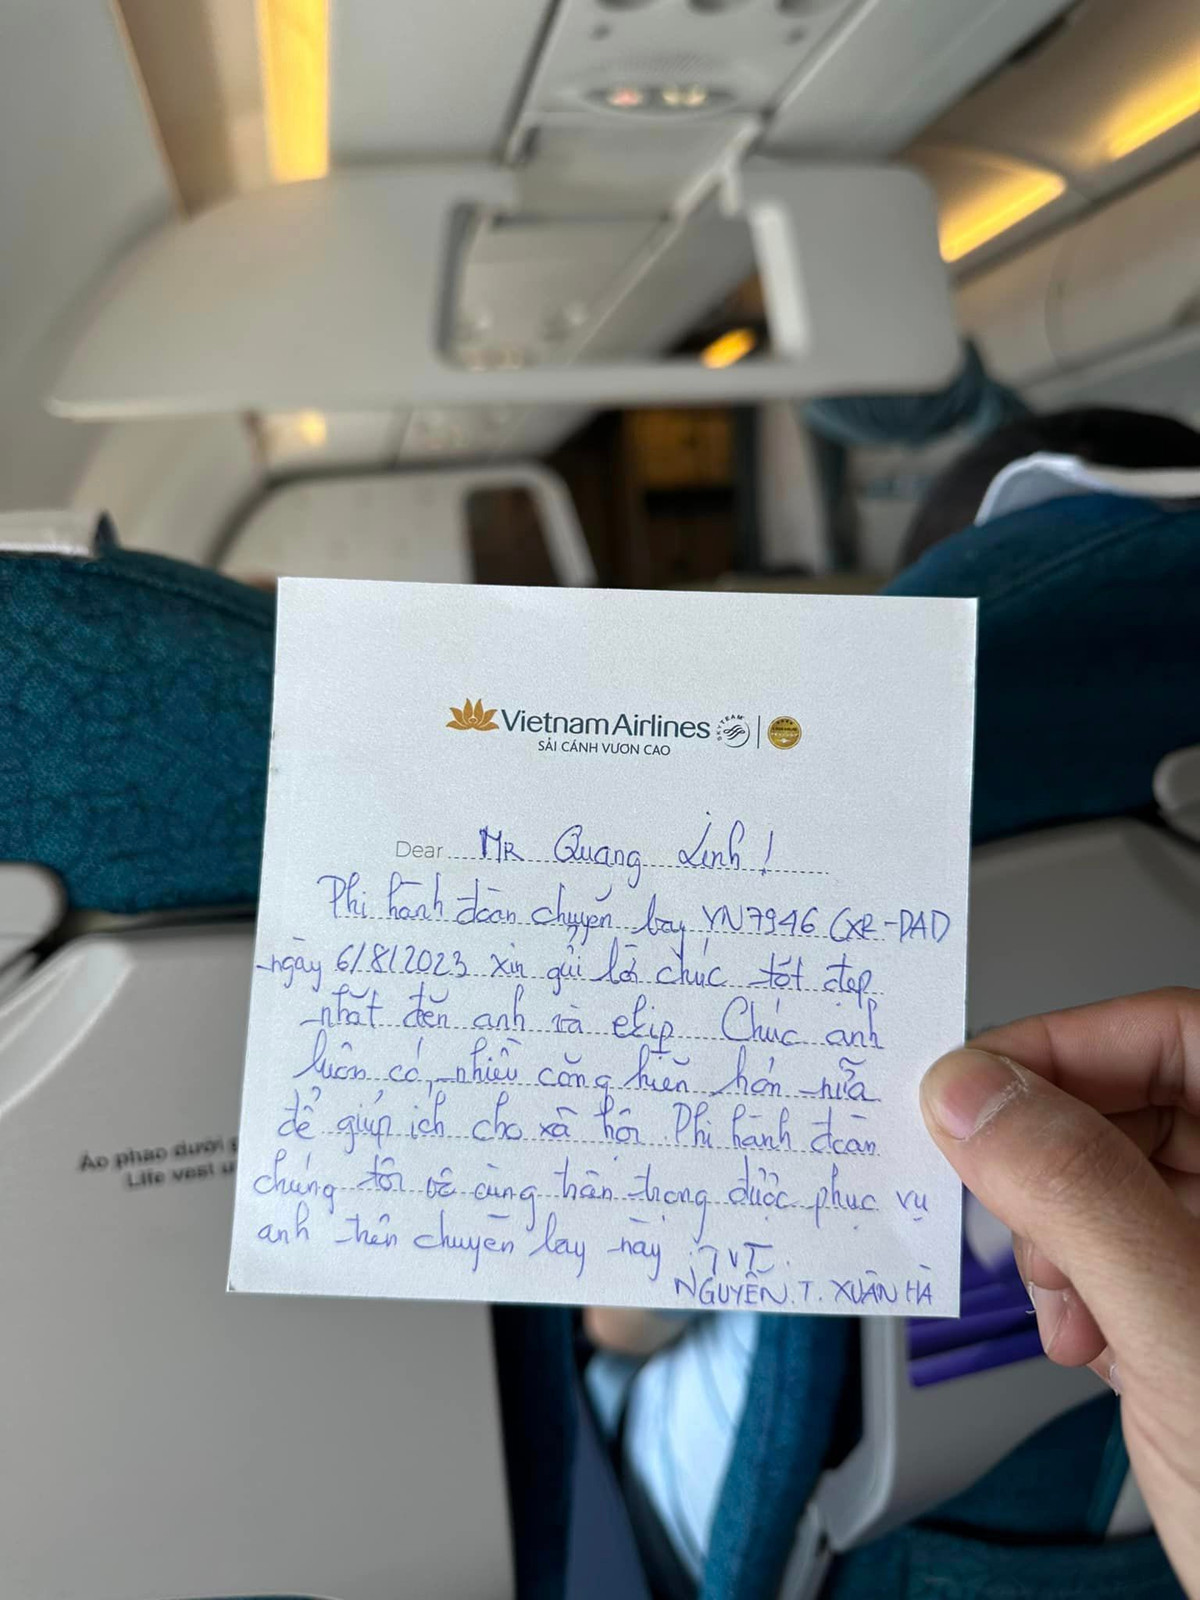 Vietnam Airlines SKYTEAM
SẢI CÁNH VƯƠN CAO
Dear MR Quang Linh!
Phi hành đoàn chuyến bay VN7946 CXR-DAD
ngày 6/8/2023 xin gửi lời chúc tốt đẹp
nhất đến anh và ekip. Chúc anh
luôn có nhiều cống hiến hơn nữa
để giúp ích cho xã hội. Phi hành đoàn
chúng tôi vô cùng trân trọng được phục vụ
anh trên chuyến bay này
NGUYỄN.T. XUÂN HÀ
Áo phao dưới
Life vest